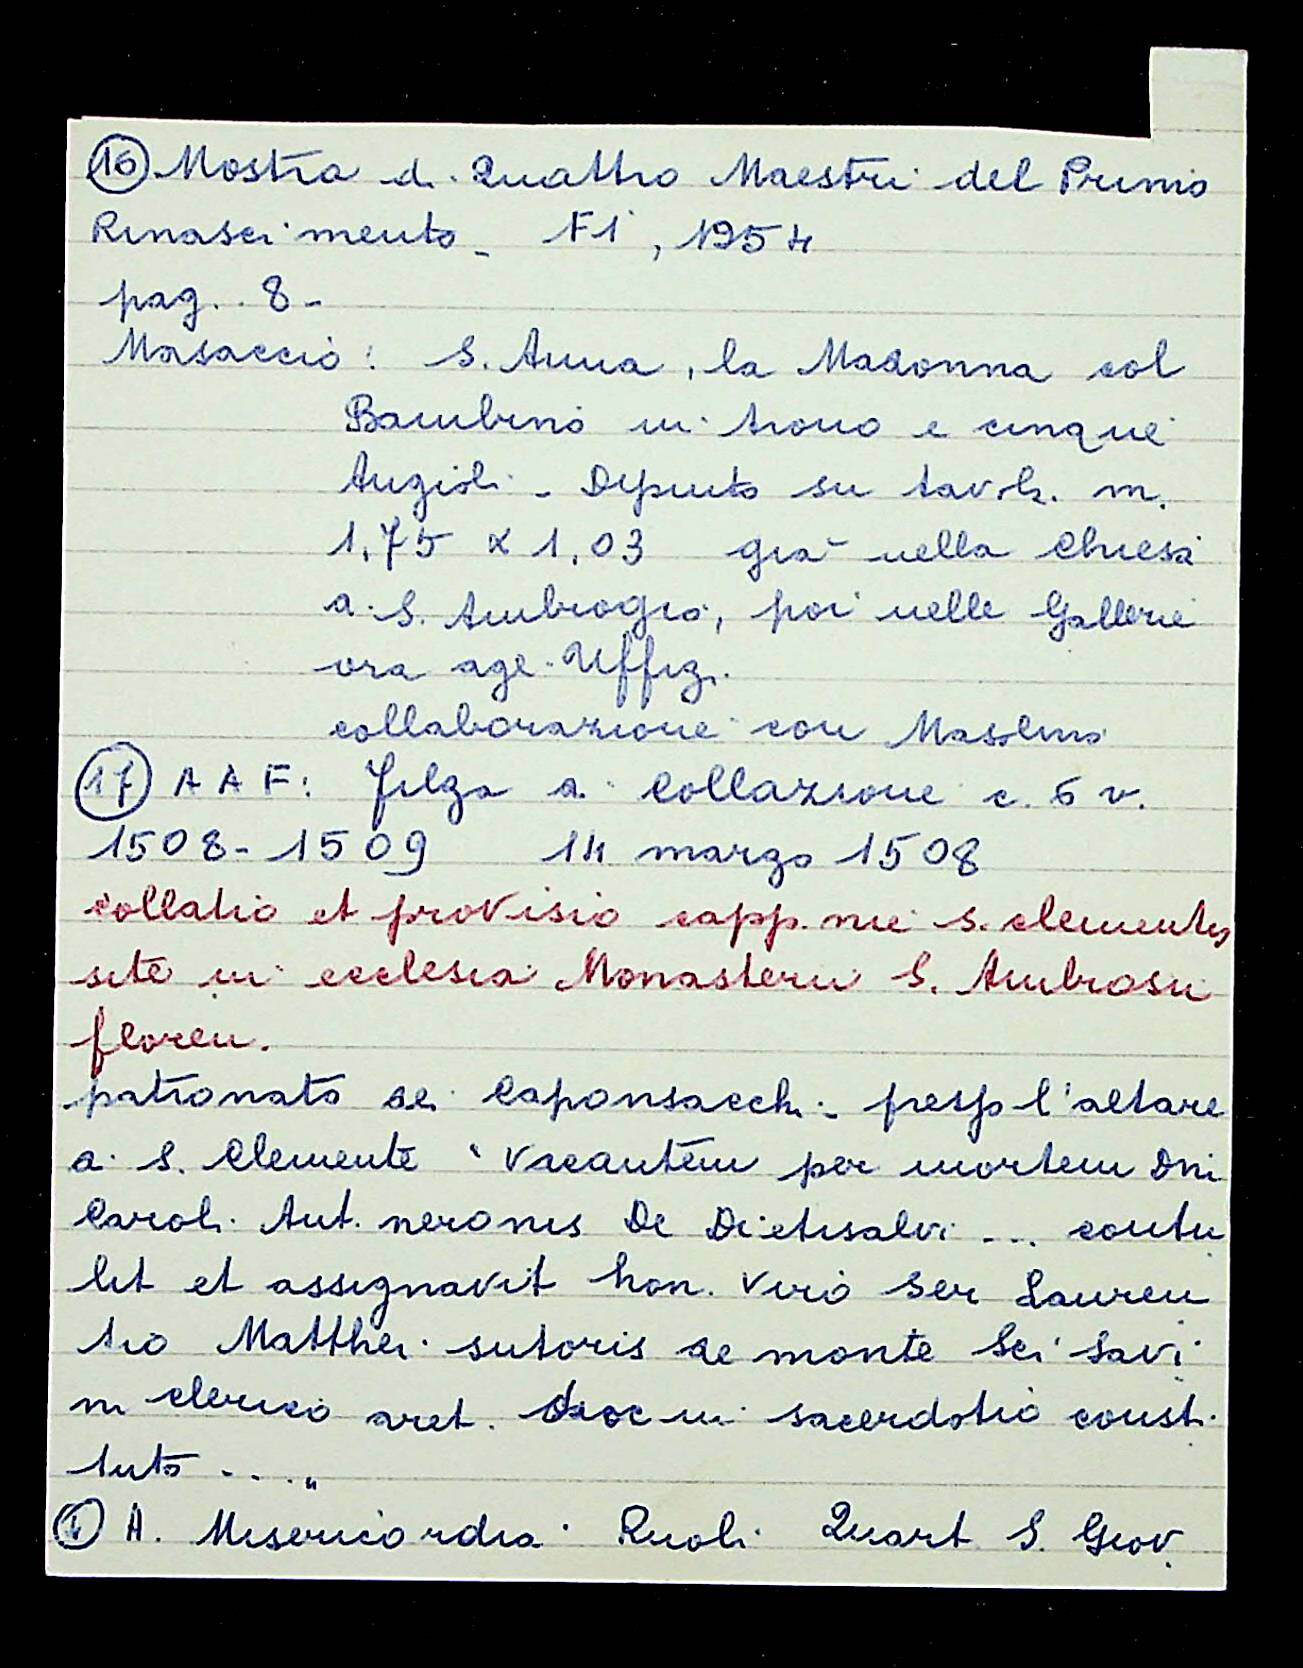 16 Mostra di Quattro Maestri del Primo
Rinascimento - Fi, 1954
pag. 8 -
Masaccio: S. Anna, la Madonna col
Bambino in trono e cinque
Angioli - Dipinto su tavola. m.
1,75 x 1,03 già nella Chiesa
di S. Ambrogio, poi nelle Gallerie
ora agli Uffizi.
collaborazione con Masolino
17 A A F: Filza di Collazione c. 6 v.
1508-1509 14 marzo 1508
collatio et provisio capp.nie S. clementis
site in ecclesia Monasterii S. Ambrosii
floren.
patronato dei Caponsacchi - presso l'altare
di S. Clemente "vacantem per mortem Dni
Caroli Ant. neronis De Dietisalvi ... contu
lit et assignavit hon. viro ser Lauren
tio Matthei sutoris de monte Sci Savi
ni clerico aret. dioc in sacerdotio consti
tuto ...."
A. Misericordia Ruoli Quart S. Giov.